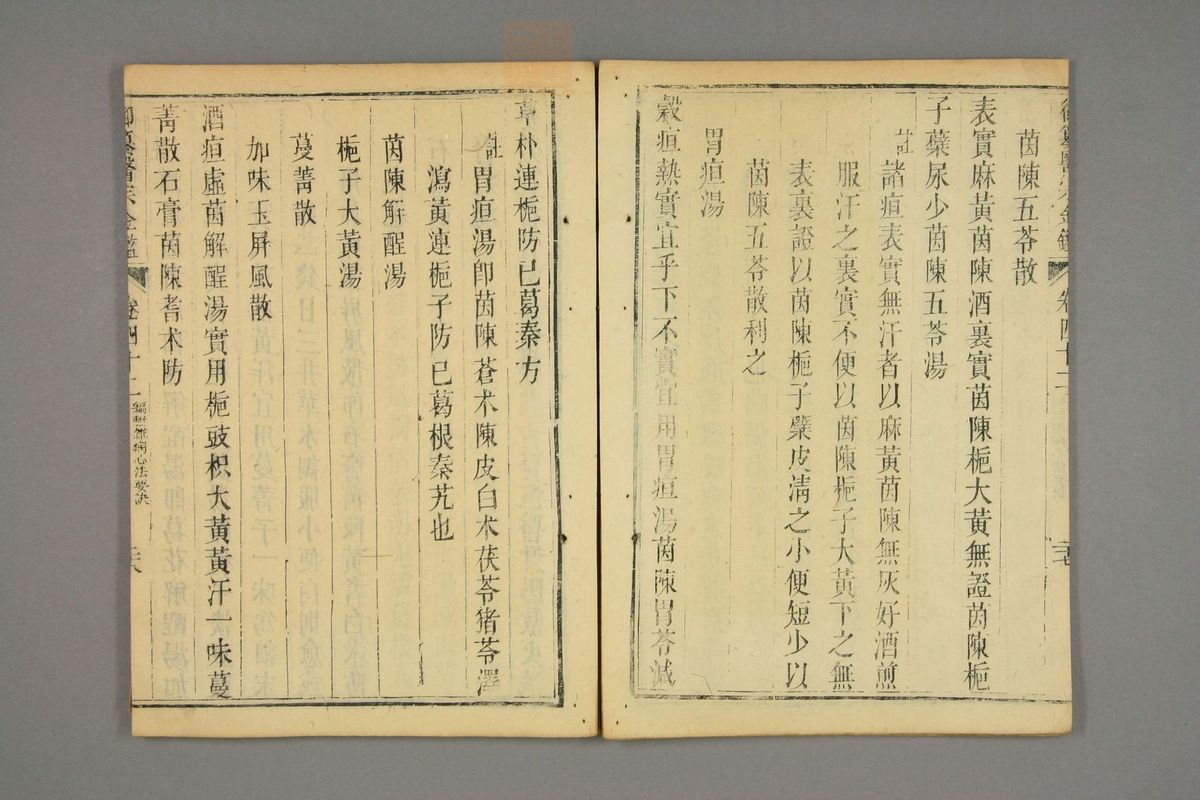 茵陳五苓散
表實麻黃茵陳酒裏實茵陳梔大黃無證茵陳梔
子蘗尿少茵陳五苓湯
註諸疸表實無汗者以麻黃茵陳無灰好酒煎
服汗之裏實不便以茵陳梔子大黃下之無
表裏證以茵陳梔子檗皮凊之小便短少以
茵陳五苓散利之
胃疸湯
穀疸熱實宜乎下不實宜用胃疸湯茵陳胃苓減
草朴連梔防己葛秦方
註胃疸湯卽茵陳蒼术陳皮白术茯苓猪苓澤
瀉黃連梔子防已葛根秦艽也
茵陳解酲湯
梔子大黃湯
蔓菁散
加味玉屏風散
酒疸虛茵解酲湯實用梔豉枳大黃黃汗一味蔓
菁散石膏茵陳耆术防
御纂醫宗金鑑 卷四十二 編輯雜病心法要訣